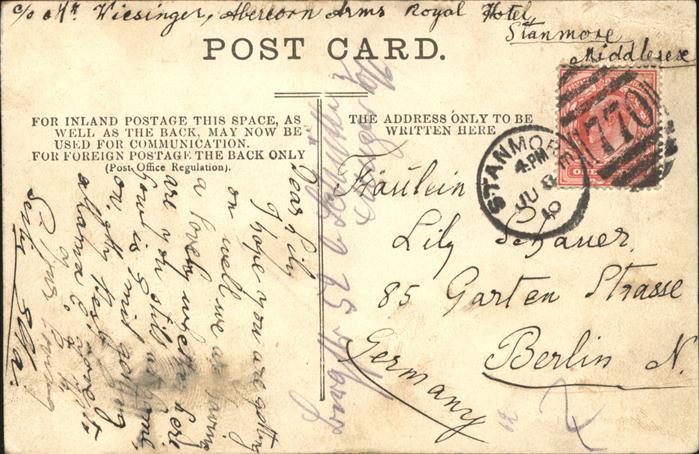 c/o Mr Wiesinger, Abercorn Arms Royal Hotel,
Stanmore
Middlesex
POST CARD.
FOR INLAND POSTAGE THIS SPACE, AS
WELL AS THE BACK, MAY NOW BE
USED FOR COMMUNICATION.
FOR FOREIGN POSTAGE THE BACK ONLY
(Post Office Regulation).
THE ADDRESS ONLY TO BE
WRITTEN HERE
STANMORE
4.PM
JU 8
10
770
ONE
Dear Lily
I hope you are getting
on well we are having
a lovely weather here
are you still at home,
how is Emil getting
on, with best love to
Mama & Fritz
Yours loving
Sister Ella.
Fräulein
Lily Schauer,
85 Garten Strasse
Berlin N.
Germany
52